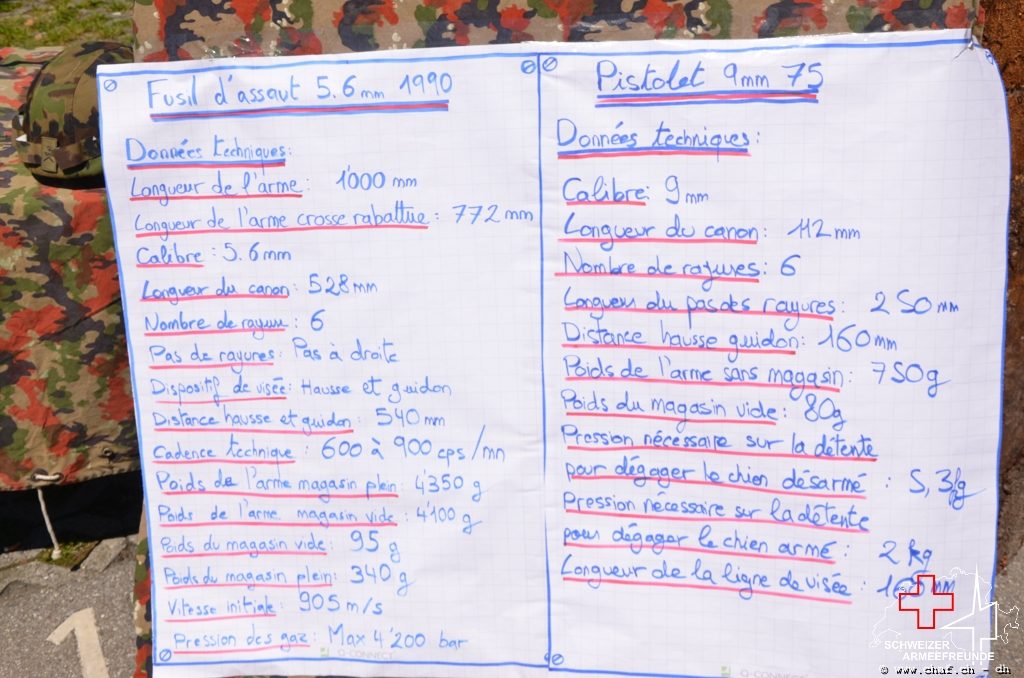 Fusil d'assaut 5.6mm 1990
Données techniques:
Longueur de l'arme: 1'000 mm
Longueur de l'arme crosse rabattue: 772 mm
Calibre: 5.6mm
Longueur du canon: 528mm
Nombre de rayure: 6
Pas de rayures: Pas à droite
Dispositif de visée: Hausse et guidon
Distance hausse et guidon: 540 mm
Cadence technique: 600 à 900 cps/mn
Poids de l'arme magasin plein: 4'350 g
Poids de l'arme magasin vide: 4'100 g
Poids du magasin vide: 95 g
Poids du magasin plein: 340 g
Vitesse initiale: 905 m/s
Pression des gaz: Max 4'200 bar
Q-CONNECT
Pistolet 9mm 75
Données techniques:
Calibre: 9mm
Longueur du canon: 112 mm
Nombre de rayures: 6
Longueur du pas des rayures: 250 mm
Distance hausse guidon: 160mm
Poids de l'arme sans magasin: 750g
Poids du magasin vide: 80g
Pression nécessaire sur la détente
pour dégager le chien désarmé : 5,
Pression nécessaire sur la détente
pour dégager le chien armé: 2 kg
Longueur de la ligne de visée: 160 mm
Q-CONNECT
1
SCHWEIZER
ARMEEFREUNDE
© www.chaf.ch - dh